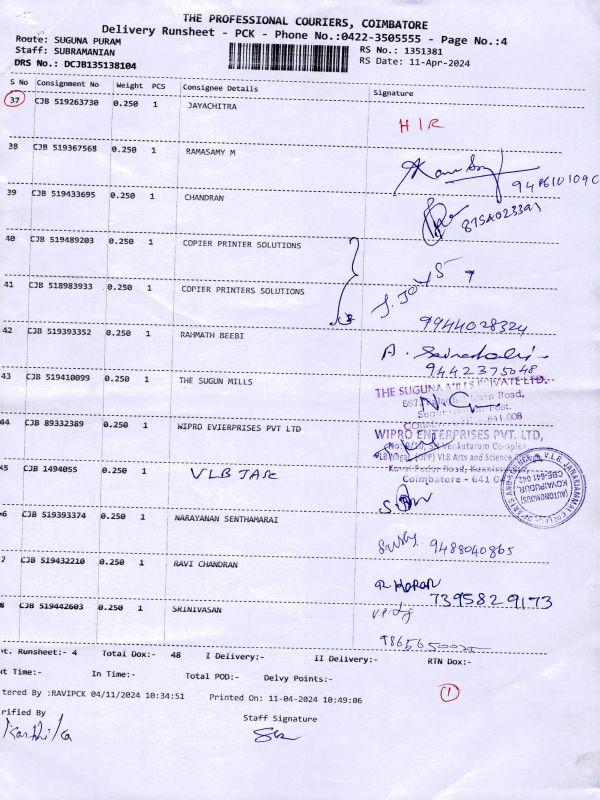 THE PROFESSIONAL COURIERS, COIMBATORE
Delivery Runsheet - PCK - Phone No.:0422-3505555 - Page No.:4
Route: SUGUNA PURAM RS No.: 1351381
Staff: SUBRAMANIAN RS Date: 11-Apr-2024
DRS No.: DCJB135138104
S No Consignment No Weight PCS Consignee Details Signature
37 CJB 519263730 0.250 1 JAYACHITRA
HIR
38 CJB 519367568 0.250 1 RAMASAMY M
39 CJB 519433695 0.250 1 CHANDRAN
40 CJB 519489203 0.250 1 COPIER PRINTER SOLUTIONS
41 CJB 518983933 0.250 1 COPIER PRINTERS SOLUTIONS
9944028324
42 CJB 519393352 0.250 1 RAHMATH BEEBI
9442375048
43 CJB 519410099 0.250 1 THE SUGUN MILLS
THE SUGUNA MILLS PRIVATE LTD.
44 CJB 89332389 0.250 1 WIPRO EVIERPRISES PVT LTD
WIPRO ENTERPRISES PVT. LTD,
Coimbatore - 641 042
45 CJB 1494055 0.250 1 VLB JAK
46 CJB 519393374 0.250 1 NARAYANAN SENTHAMARAI
9488040865
7 CJB 519432210 0.250 1 RAVI CHANDRAN
7395829173
8 CJB 519442603 0.250 1 SRINIVASAN
nt. Runsheet:- 4 Total Dox:- 48 I Delivery:- II Delivery:- RTN Dox:-
ut Time:- In Time:- Total POD:- Delvy Points:-
tered By :RAVIPCK 04/11/2024 10:34:51 Printed On: 11-04-2024 10:49:06
1
rified By Staff Signature
Karthika